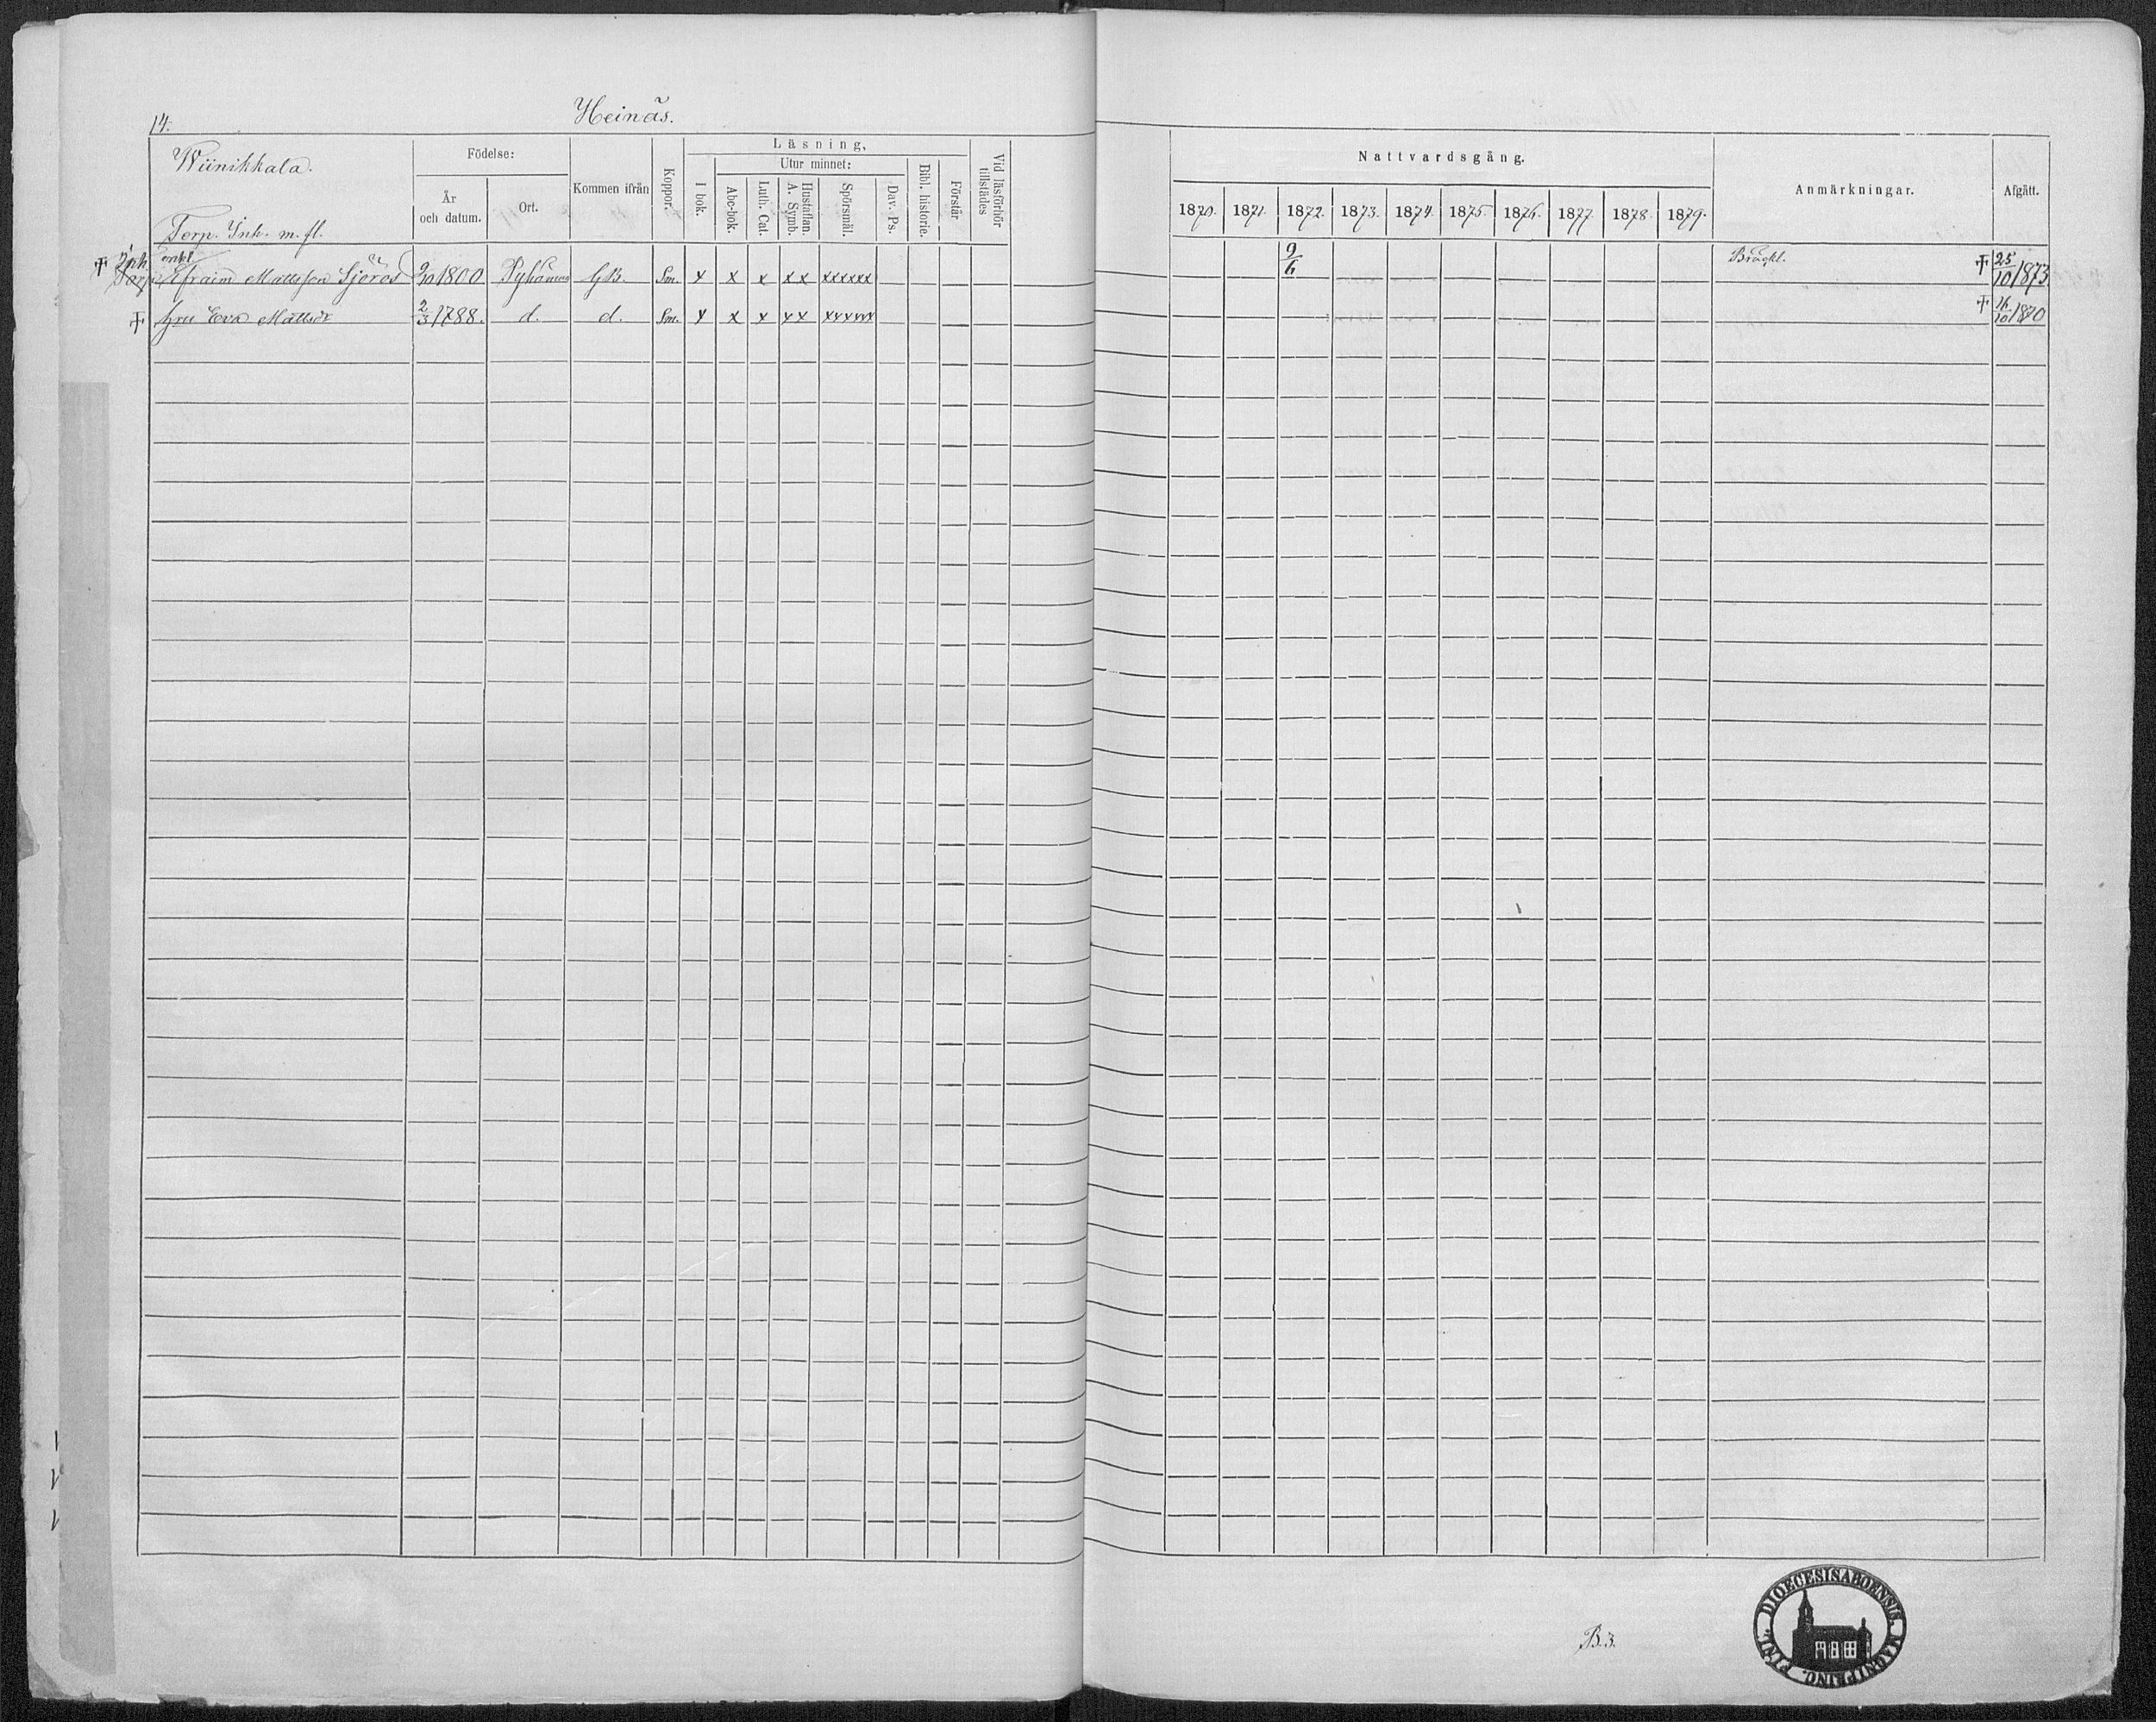 14.
Heinäs.
Wiinikkala.
Torp. Inh. m. fl.
Födelse:
År och datum.
Ort.
Kommen ifrån
Koppor.
Läsning,
I bok.
Utur minnet:
Abc-bok.
Luth. Cat.
Hustaflan. A. Symb.
Spörsmål.
Dav. Ps.
Bibl. historie.
Förstår
Vid läsförhör tillstädes
Nattvardsgång.
1870. 1871. 1872. 1873. 1874. 1875. 1876. 1877. 1878. 1879.
Anmärkningar.
Afgått.
Inh. enkl.
† Torp. Efraim Mattsson Sjöros 9/10 1800 Pyhämaa G.B. Sm. x x x xx xxxxxx 9/6 Bräckl. † 25/10 1873.
† hru Eva Mattsdr 2/3 1788. d. d. Sm. x x x xx xxxxxx † 16/10 1870
B.3.
DIOECESIS ABOENSIS